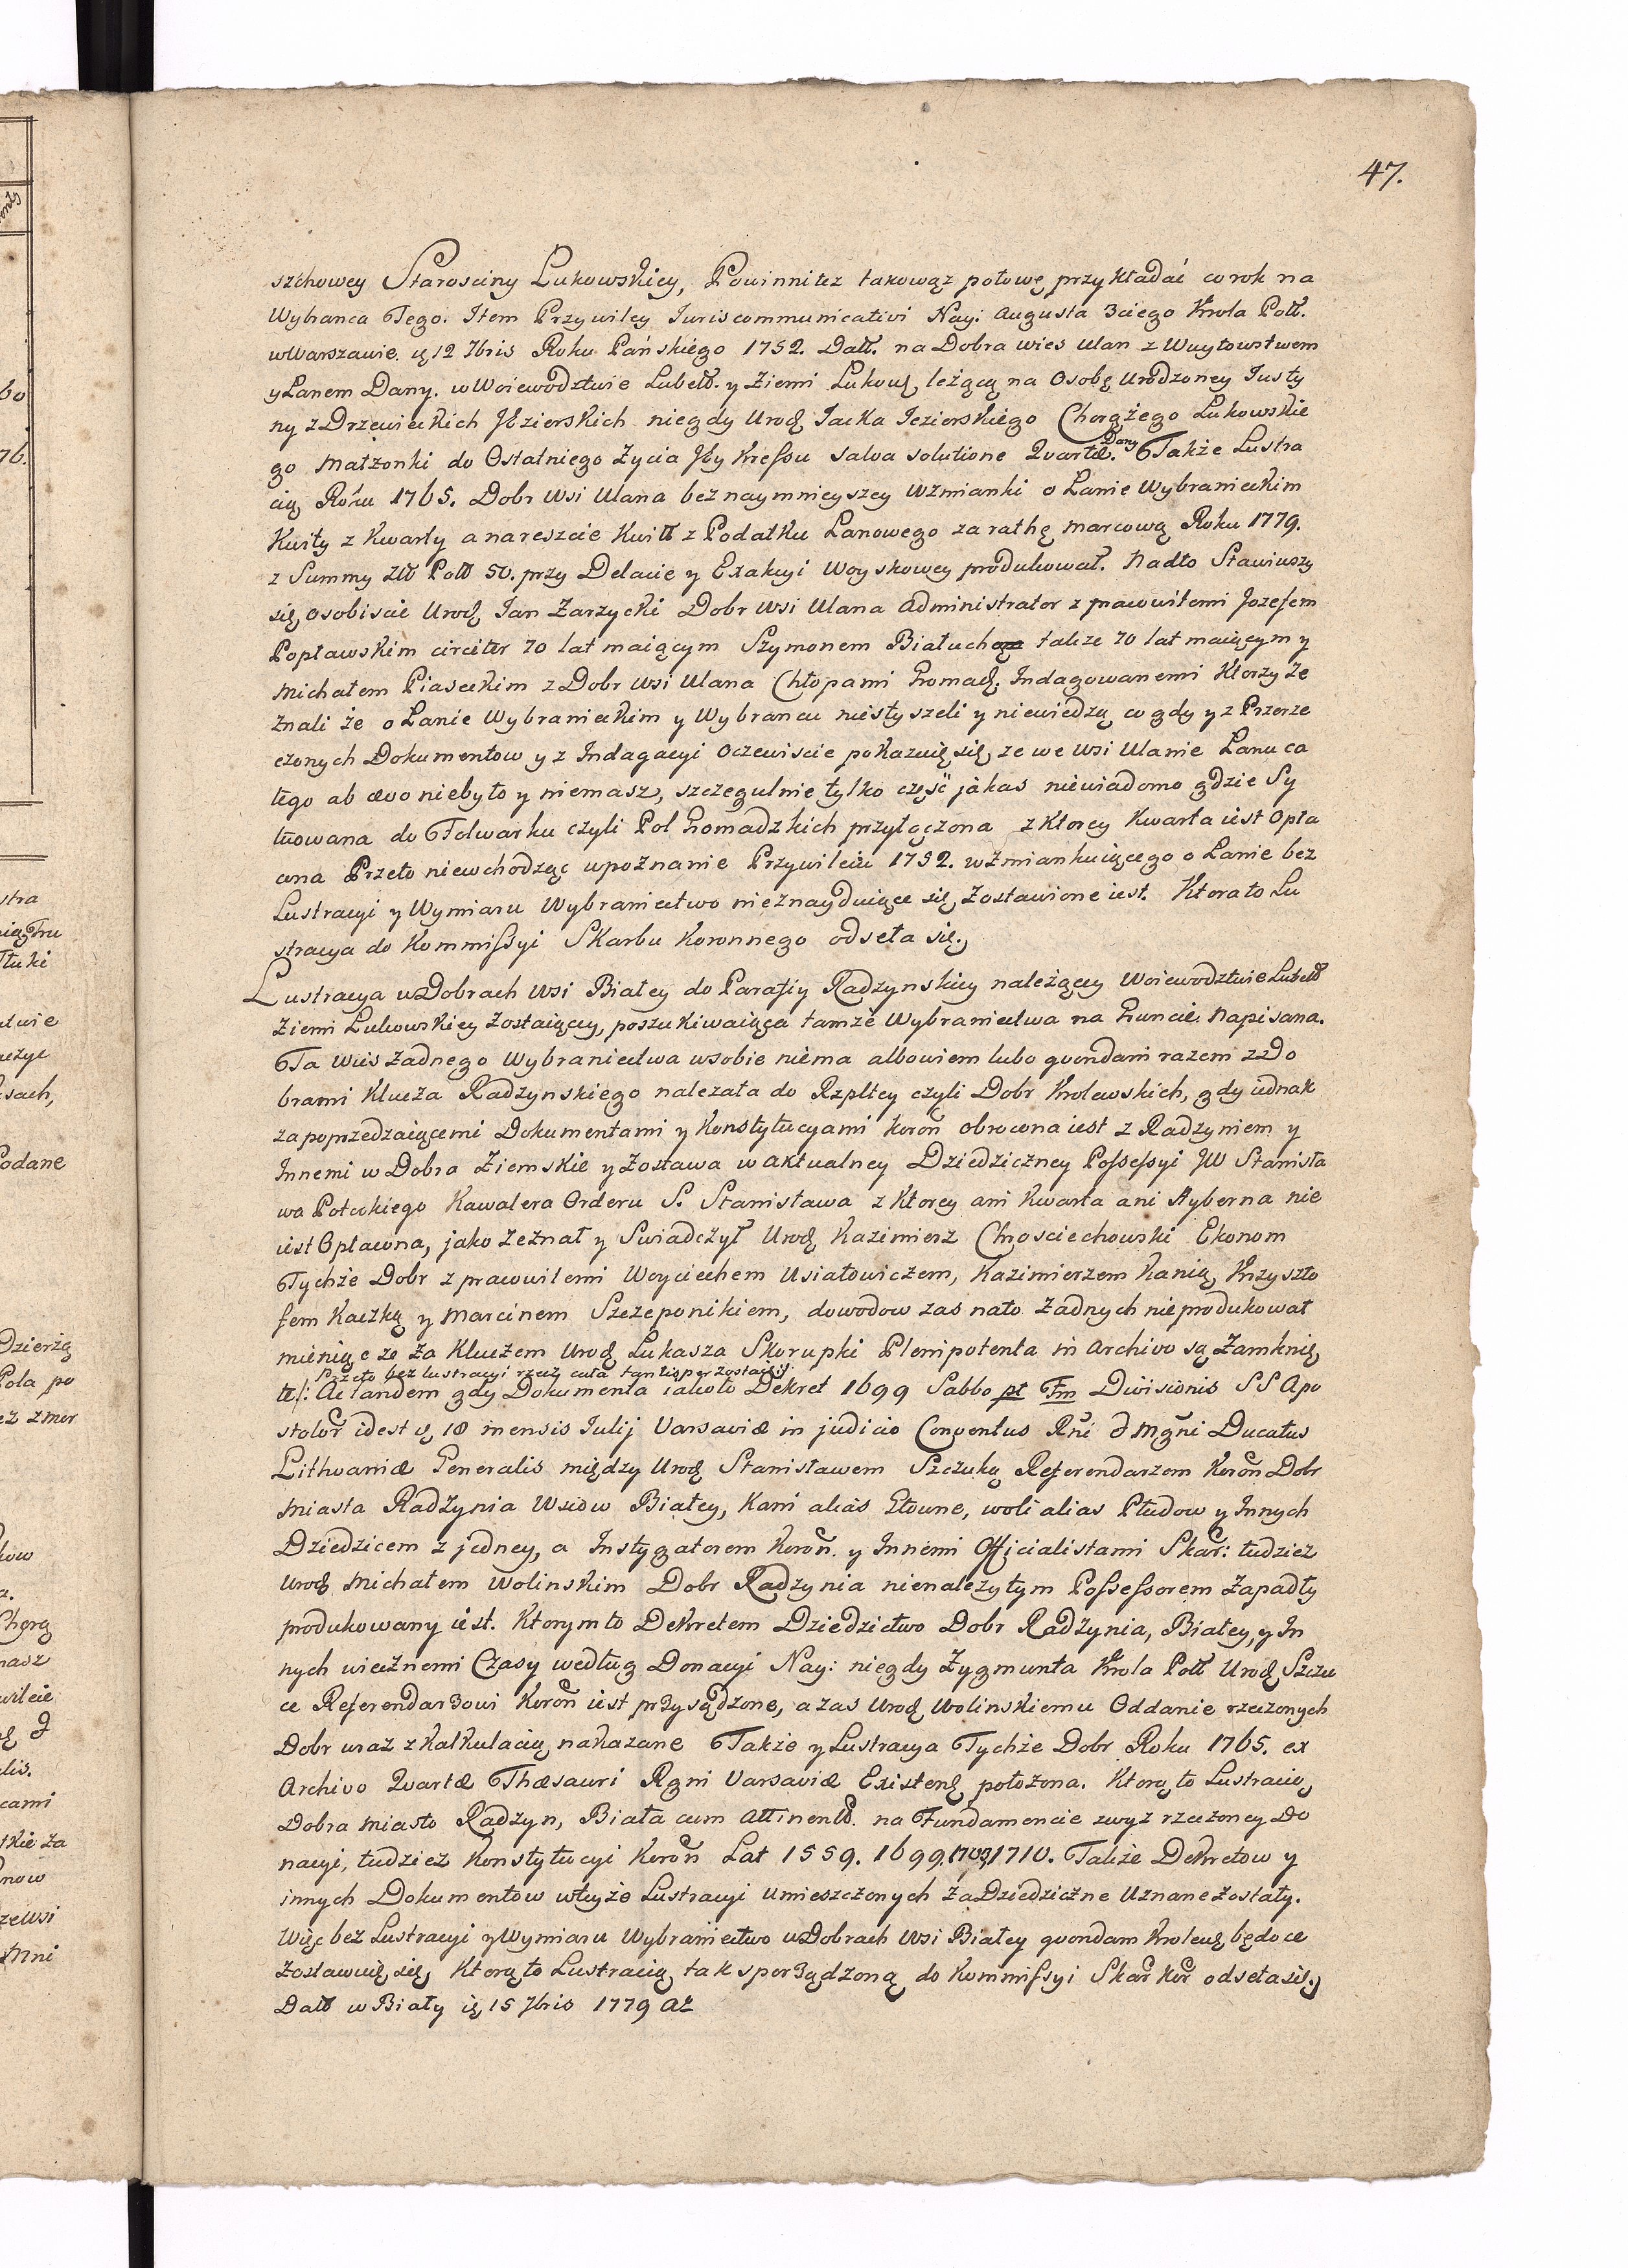 47.
szchowey Starosciny Łukowskiey, Powinni tez takowąz połowę przykładać co rok na
Wybranca Tego. Item Przywiley Iuris communicativi Nay: Augusta 3ciego Krola Poll.
w Warszawie. 12 7bris Roku Pańskiego 1752. Datt. na Dobra wies Ulan z Wuytowstwem
y Łanem Dany. w Woiewodztwie Lubell. y Ziemi Łukow. leżącą na Osobę Urodzoney Iusty
ny z Drzewieckich Jezierskich niegdy Urodz Iacka Iezierskiego Chorążego Łukowskie
go Małzonki do Ostatniego Życia Jey Kressu salva solutione Quartæ. Dany Także Lustra
cią Roku 1765. Dobr Wsi Ulana bez naymnieyszey Wzmianki o Łanie Wybranieckim
Kwity z Kwarty a nareszcie Kwitt z Podatku Łanowego za rathę Marcową Roku 1779.
z Summy Złł Poll 50. przy Delacie y Exakcyi Woyskowey produkował. Nadto Stawiwszy
się osobiscie Urodz Ian Zarzycki Dobr Wsi Ulana Administrator z prawowitemi Jozefem
Popławskim circiter 70 lat maiącym Szymonem Białuch takze 70 lat maiącym y
Michałem Piaseckim z Dobr Wsi Ulana Chłopami Gromadz. Indagowanemi Ktorzy Ze
Znali że o Łanie Wybranieckim y Wybrancu niesłyszeli y niewiedzą co gdy y z Przerze
czonych Dokumentow y z Indagacyi oczewiscie pokazuię się, ze we Wsi Ulanie Łanu ca
łego ab ævo niebyło y niemasz, szczegulnie tylko część jakas niewiadomo gdzie Sy
tuowana do Folwarku czyli Pol Gromadzkich przyłączona z Ktorey Kwarta iest Opła
cona Przeto niewchodząc w poznanie Przywileiu 1752. wzmiankuiącego o Łanie bez
Lustracyi y Wymiaru Wybraniectwo nieznayduiące się Zostawione iest. Ktora to Lu
stracya do Kommissyi Skarbu Koronnego odseła się.
Lustracya w Dobrach Wsi Białey do Parafiy Radzynskiey należącey Woiewodztwie Lubell
Ziemi Łukowskiey Zostaiącey, poszukiwaiąca tamże Wybraniectwa na Gruncie. Napisana.
Ta Wies Zadnego Wybraniectwa w sobie niema albowiem lubo quondam razem z zDo
brami Klucza Radzynskiego nalezała do Rzpltey czyli Dobr Krolewskich, gdy iednak
za poprzedzaiącemi Dokumentami y Konstytucyami Koroñ obrocona iest z Radzyniem y
Innemi w Dobra Ziemskie y Zostawa w aktualney Dziedziczney Possessyi JW Stanisła
wa Potockiego Kawalera Orderu S. Stanisława z Ktorey ani Kwarta ani Hyberna nie
iest Opłacona, jako Zeznał y Swiadczył Urodz Kazimierz Chrosciechowski Ekonom
Tychże Dobr z prawowitemi Woyciechem Usiatowiczem, Kazimierzem Kanią, Krzyszto
fem Kaczką y Marcinem Szczeponikiem, dowodow zas na to Zadnych nieprodukował
mieniąc ze Za Kluczem Urodz Łukasza Skorupki Plenipotenta in Archivo są Zamknię
Przeto bez lustracyi rzecz cała
te/: Ac tandem gdy Dokumenta iakoto Dekret 1699 Sabbo pt Fm Divisionis SS Apo
stolor̃ idest 18 mensis Iulij Varsaviæ in judicio Conventus Rñi & Mgni Ducatus
Lithvaniæ Generalis między Urodz Stanisławem Szczuką Referendarzem Koroñ Dobr
Miasta Radzynia Wsiow Białey, Kani alias Główne, woli alias Płudow y Innych
Dziedzicem z jedney, a Instygatorem Koroñ. y Innemi Officialistami Skar: tudziez
Urodz Michałem Wolinskim Dobr Radzynia nienależytym Possessorem Zapadły
produkowany iest. Ktorym to Dekretem Dziedzictwo Dobr Radzynia, Białey, y In
nych wiecznemi Czasy według Donacyi Nay: niegdy Zygmunta Krola Poll Urodz Szczu
ce Referendarzowi Koroñ iest przysądzone, a zas Urodz Wolinskiemu Oddanie rzeczonych
Dobr wraz z Kalkulacią nakazane Także y Lustracya Tychże Dobr Roku 1765. ex
Archivo Quartæ Thæsauri Rgni Varsaviæ Existen położona. Ktorą to Lustracią
Dobra Miasto Radzyn, Biała cum attinen. na Fundamencie zwyz rzeczoney Do
nacyi, tudziez Konstytucyi Koroñ Lat 1559. 1699, 1703, 1710. Takze Dekretow y
innych Dokumentow w teyże Lustracyi Umieszczonych Za Dziedziczne Uznane Zostały.
Więc bez Lustracyi y Wymiaru Wybraniectwo w Dobrach Wsi Białey quondam Krolew będące
Zostawuię się Ktorą to Lustracią tak sporządzoną do Kommissyi Skar Kor odseła się.
Datt w Biały 15 7bris 1779